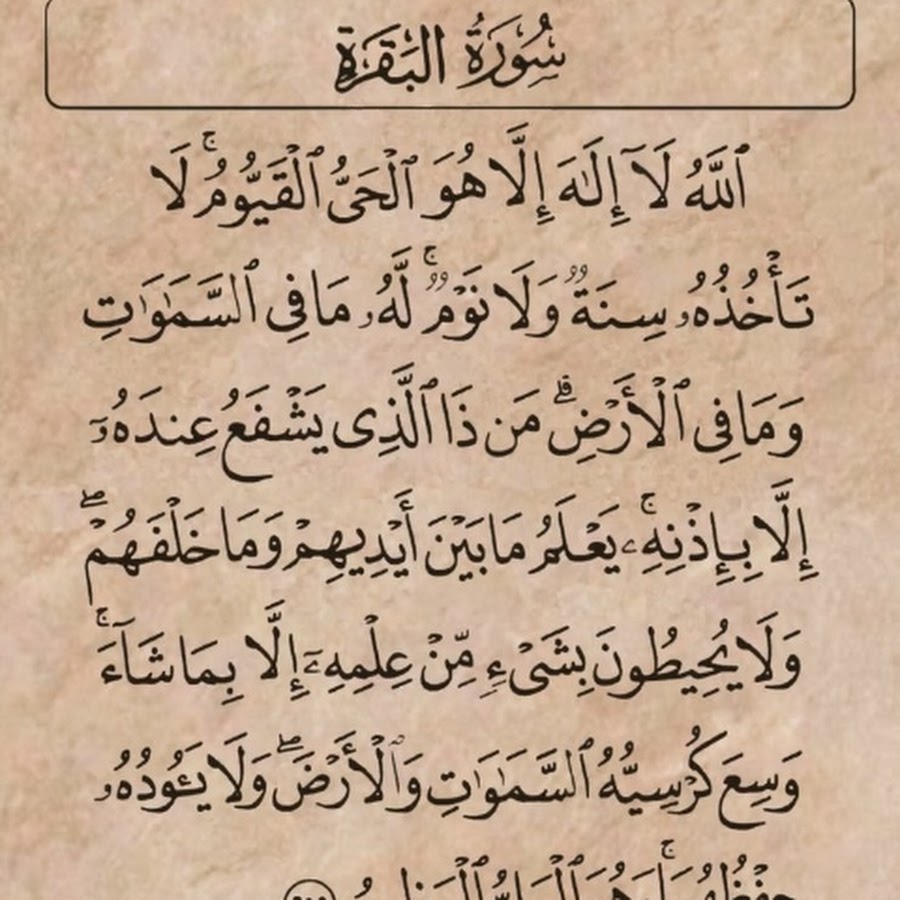 سُورَةُ البَقَرَةِ
ٱللَّهُ لَآ إِلَٰهَ إِلَّا هُوَ ٱلْحَىُّ ٱلْقَيُّومُ ۚ لَا
تَأْخُذُهُۥ سِنَةٌ وَلَا نَوْمٌ ۚ لَّهُۥ مَا فِى ٱلسَّمَٰوَٰتِ
وَمَا فِى ٱلْأَرْضِ ۗ مَن ذَا ٱلَّذِى يَشْفَعُ عِندَهُۥٓ
إِلَّا بِإِذْنِهِۦ ۚ يَعْلَمُ مَا بَيْنَ أَيْدِيهِمْ وَمَا خَلْفَهُمْ ۖ
وَلَا يُحِيطُونَ بِشَىْءٍ مِّنْ عِلْمِهِۦٓ إِلَّا بِمَا شَآءَ ۚ
وَسِعَ كُرْسِيُّهُ ٱلسَّمَٰوَٰتِ وَٱلْأَرْضَ ۖ وَلَا يَـُٔودُهُۥ